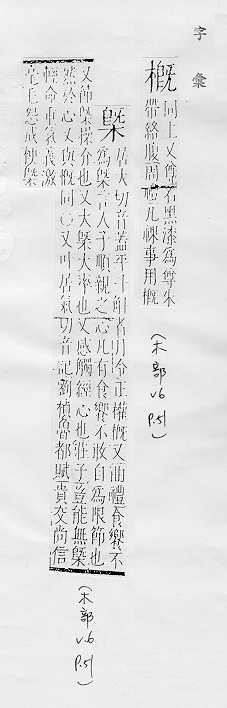 字彙
概
同上又尊名黑漆爲尊朱
帶絡腹周禮凡祼事用概
(木部 v.6 p.51)
槩
居大切音蓋平斗斛者月令正權概又曲禮食饗不
爲槩言人子順親之心凡有食饗不敢自爲限節也
又節槩操介也又大槩大率也又感觸經心也莊子豈能無槩
然於心又與概同○又叶居氣切音記劉楨魯都賦貴交尚信
輕命重氣義激
毫毛怨成梗槩
(木部 v.6 p.51)